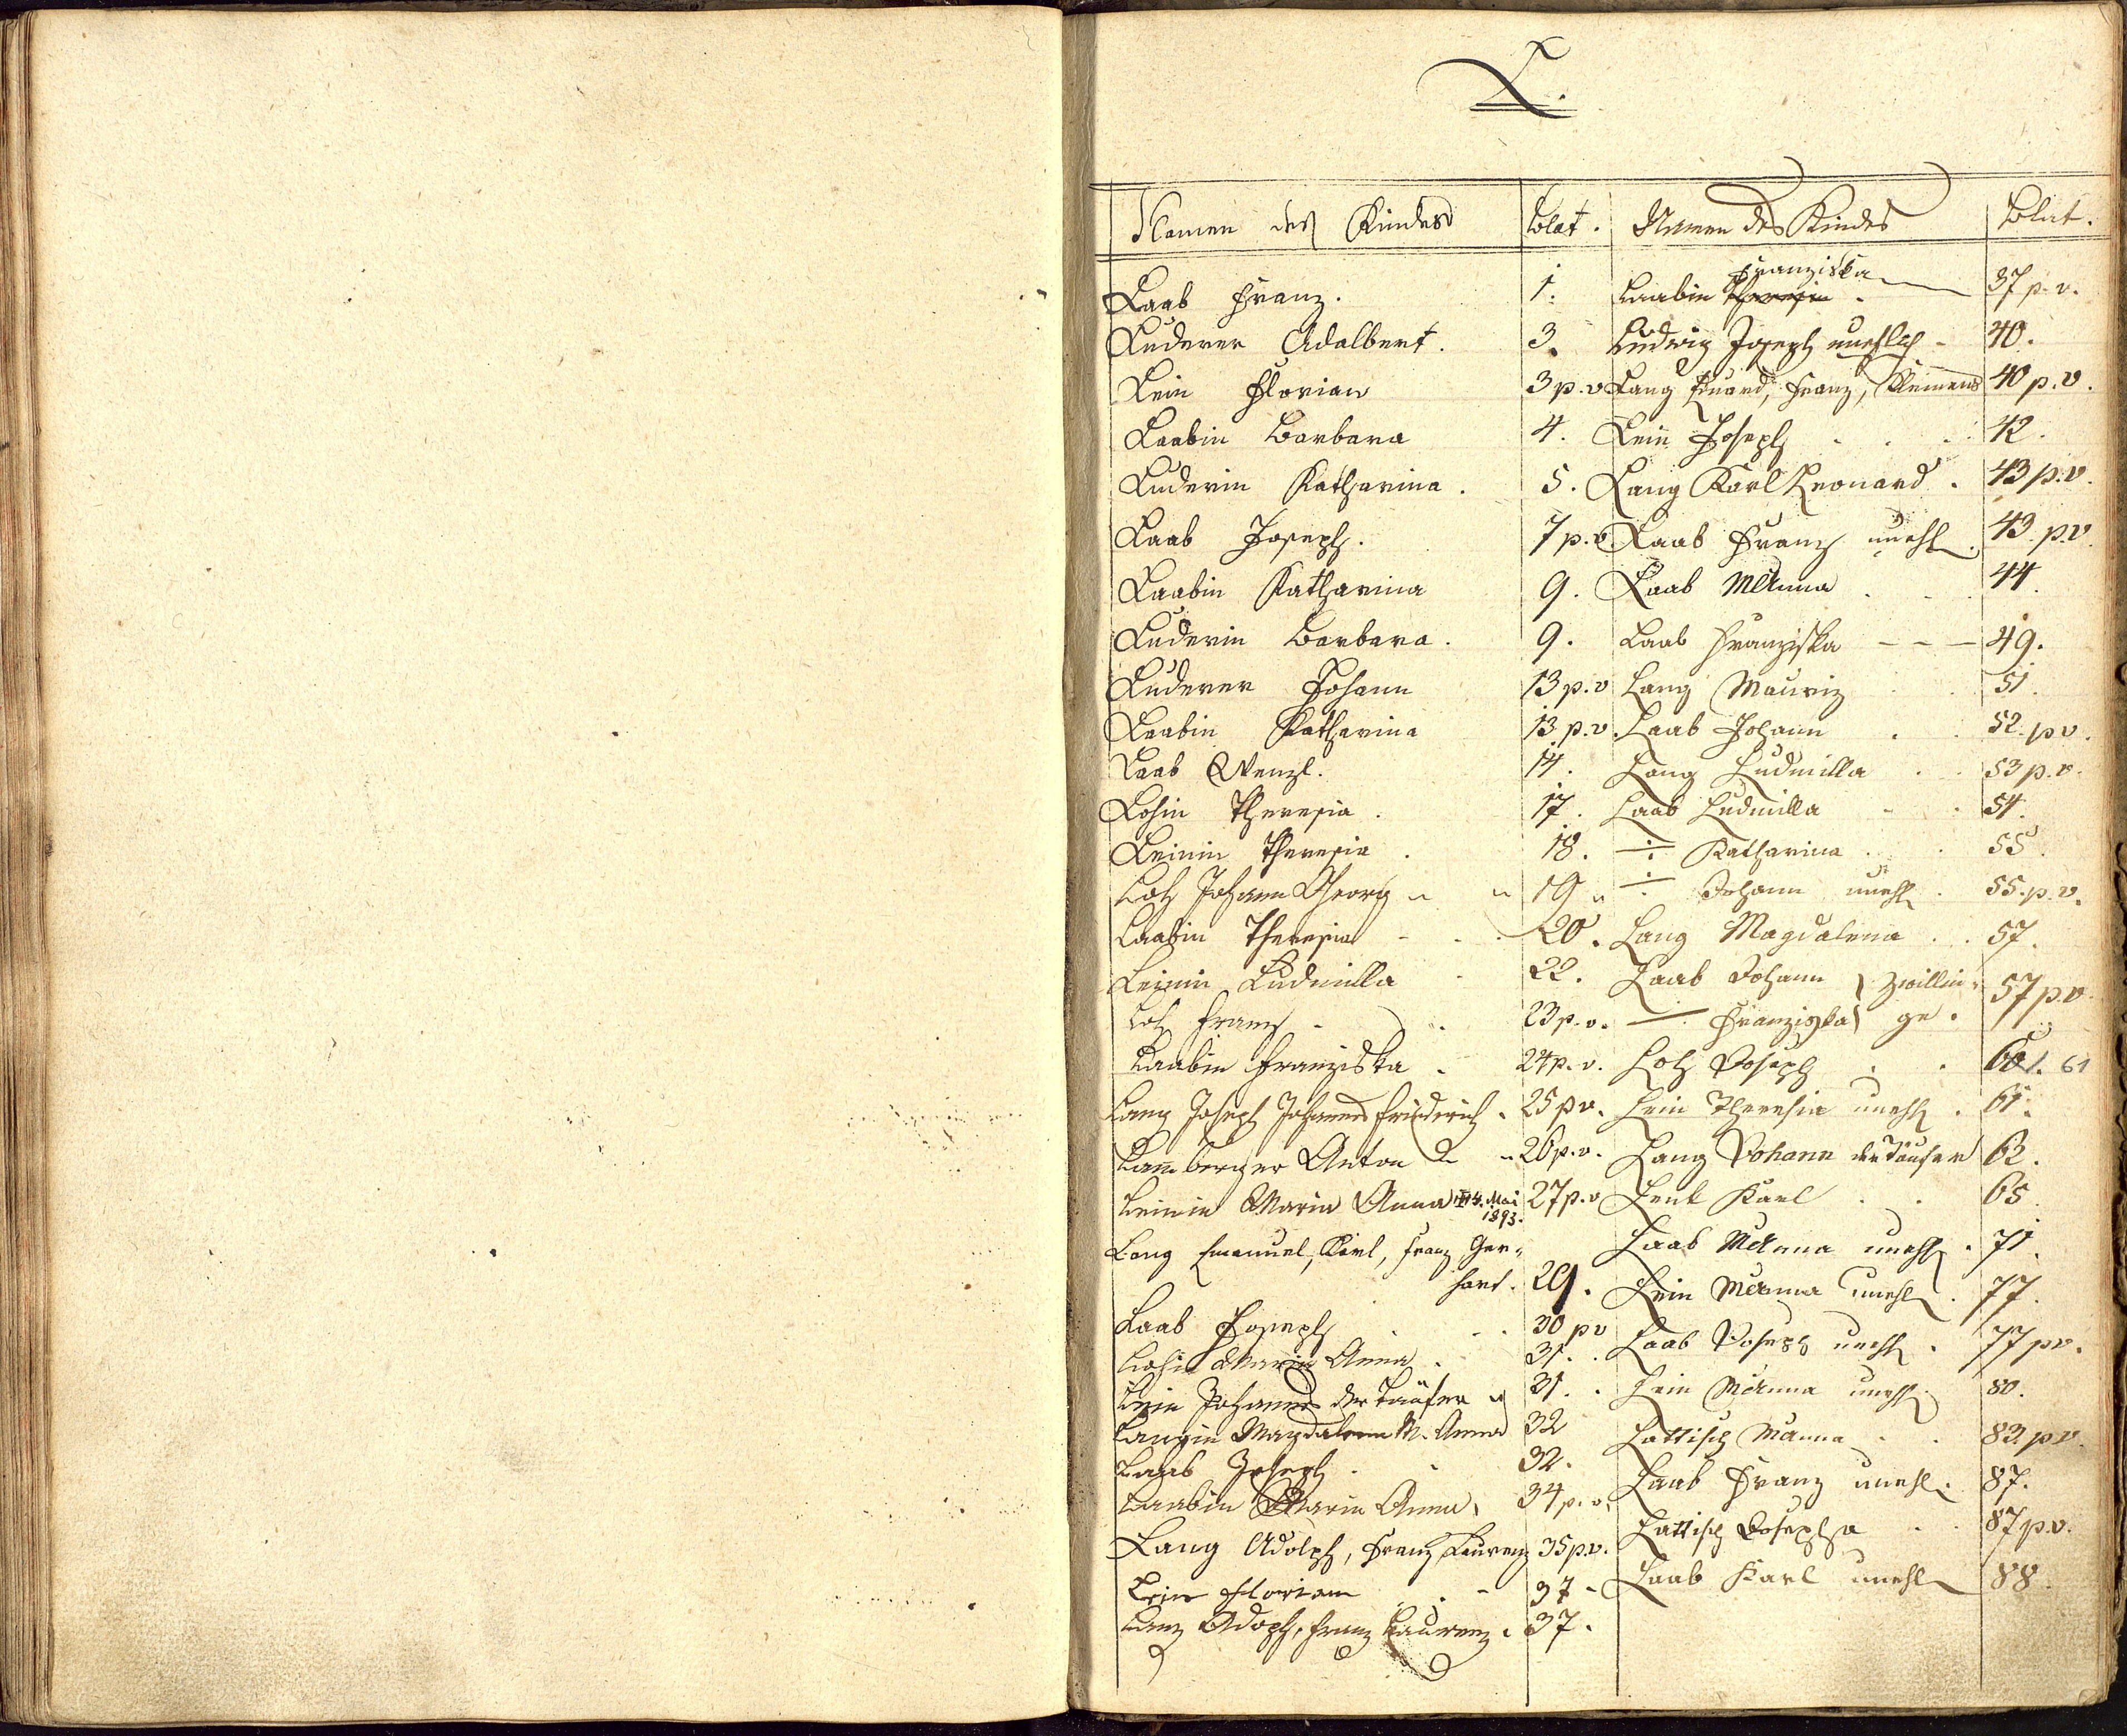 L.
Namen des Kindes
Blat.
Laab Franz. 1.
Luderer Adalbert. 3.
Lein Florian 3 p. v
Laabin Barbara 4.
Luderin Katharina. 5.
Laab Joseph. 7 p. v.
Laabin Katharina 9.
Luderin Barbara. 9.
Luderer Johann 13 p. v
Laabin Katharina 13 p. v.
Laab Wenzl. 14.
Losin Theresia. 17.
Leinin Theresia. 18.
Loh Johann Georg 19
Laabin Theresia 20.
Leinin Ludmilla 22.
Loh Franz 23 p. v.
Laabin Franziska. 24 p. v.
Lang Joseph Johannes Friederich. 25 p v.
Lamberger Anton 26 p. v.
Leinin Maria Anna 4. Mai 27 p. v
1893.
Lang Emanuel, Karl, Franz Ger-
hart. 29.
Laab Joseph 30 p v
Maria Anna. 31.
Lein Johannes der Täufer 31.
Langin Magdalena M. Anna 32
Laab Joseph. 32.
Laabin Maria Anna. 34 p. v.
Lang Adolph, Franz Laurenz 35 p. v.
Lein Florian 37
Lang Adoph, Franz Laurenz. 37.
Namen des Kindes
Blat.
Franziska
Laabin Theresia. 37 p. v.
Ludwig Joseph unehlich 40.
Lang Eduard, Franz, Klemens 40 p. v.
Lein Joseph 42.
Lang Karl Leonard. 43 p. v.
Laab Franz unehl. 43 p. v.
Laab MAnna 44.
Laab Franziska 49.
Lang Mauriz 51.
Laab Johann 52. p v.
Lang Ludmilla 53 p. v.
Laab Ludmilla 54.
÷ Katharina. 55.
÷ Johann unehl. 55. p. v.
Lang Magdalena 57.
Laab Johann } Zwillin-
— Franziska } ge. 57 p. v.
Loh Joseph 61
Lein Theresia unehl. 61.
Lang Johann der Täufer 62.
Lenk Karl 65
Laab MAnna unehl. 71.
Lein MAnna unehl. 77.
Laab Joseph unehl. 77 p v.
Lein MAnna unehl. 80.
Lattisch MAnna 83. p v.
Laab Franz unehl. 87.
Lattisch Josepha 87 p. v.
Laab Karl unehl 88.